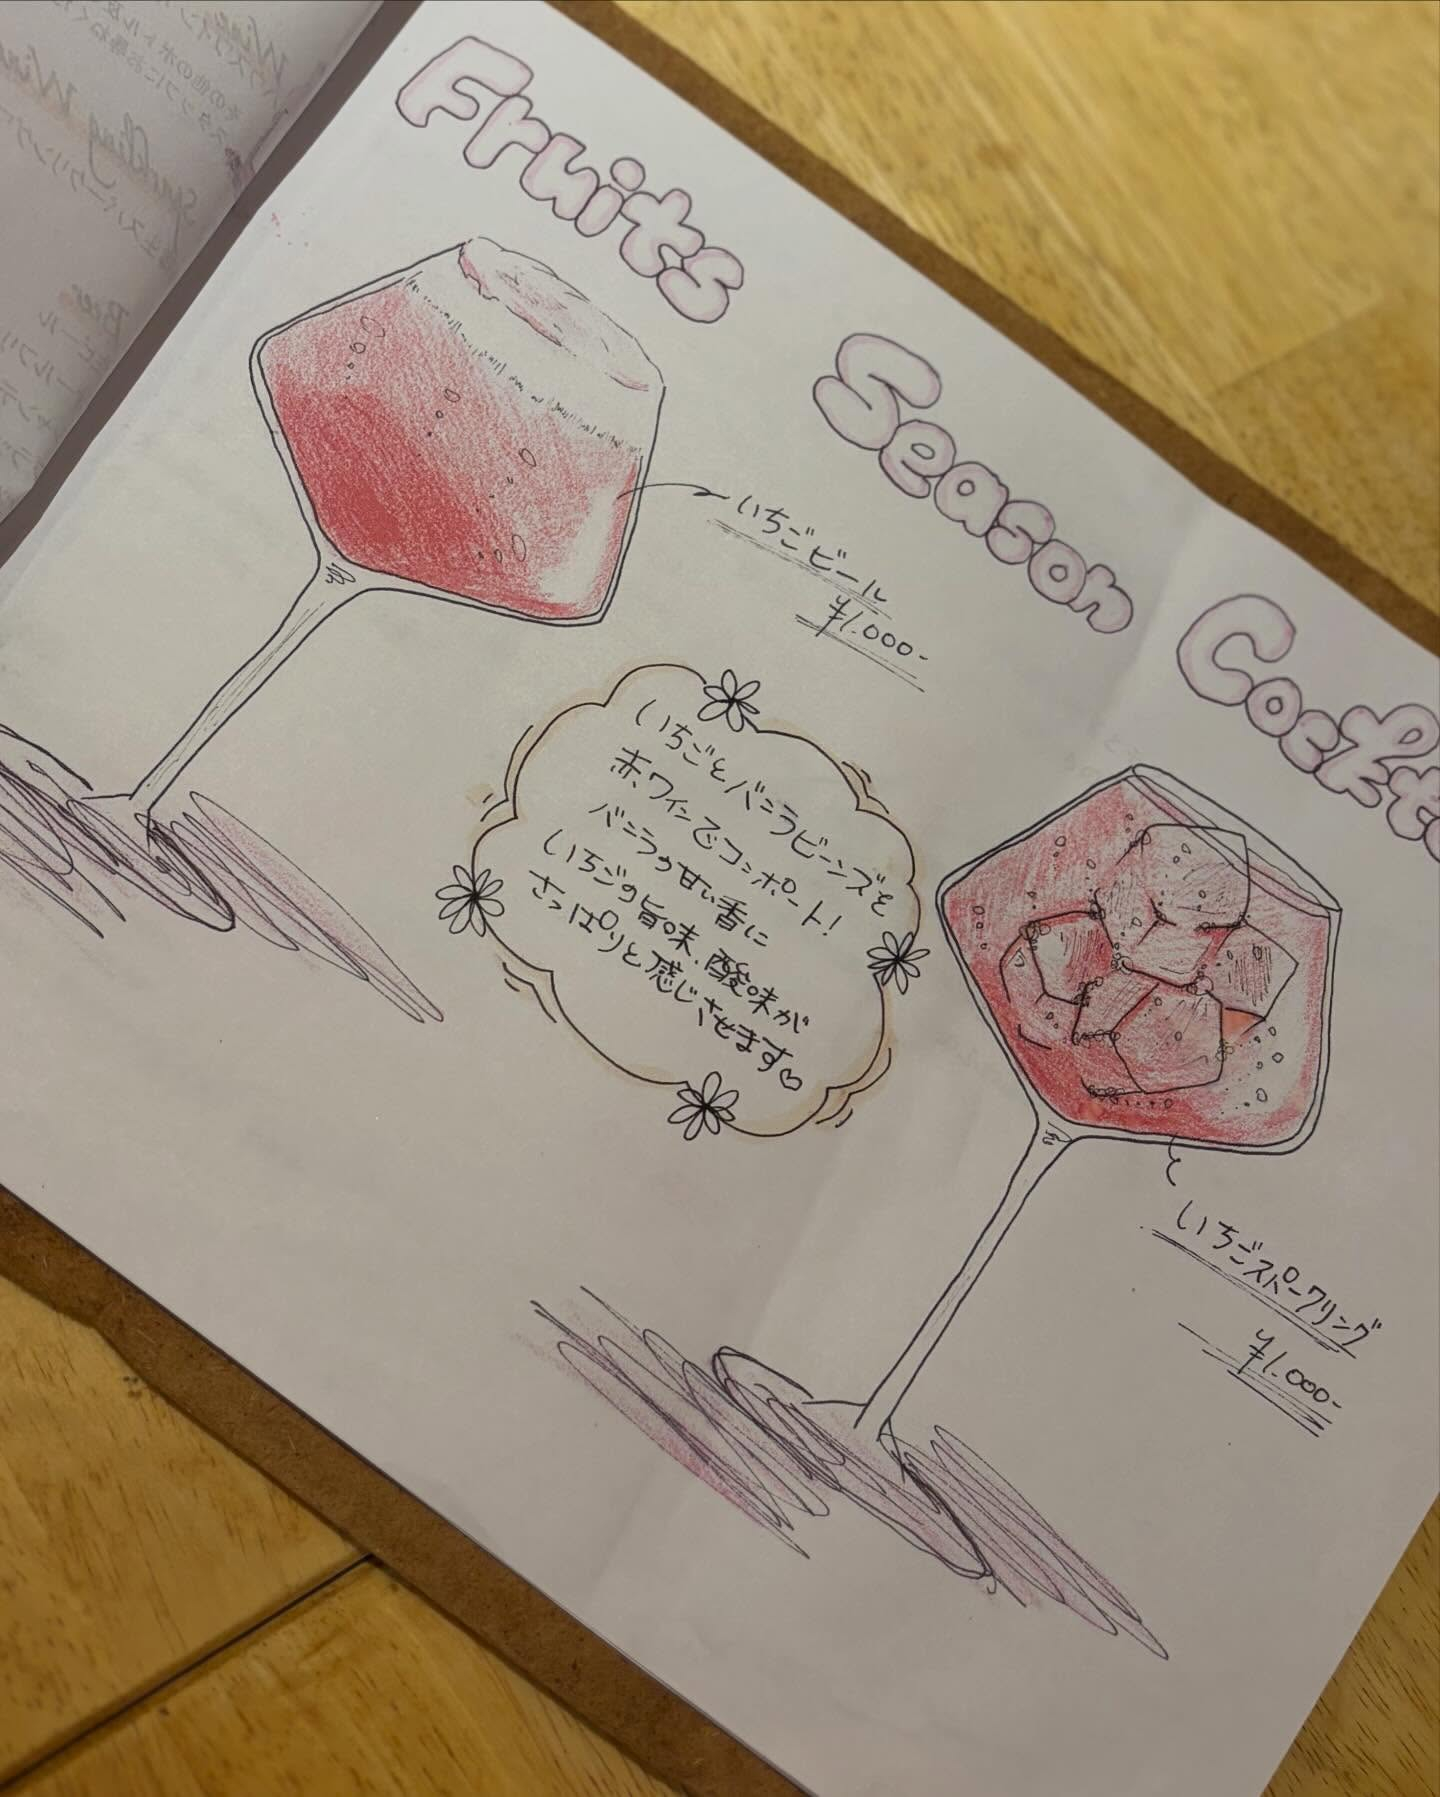 Fruits Season Cockt
いちごビール
¥1.000-
いちごとバニラビーンズを
赤ワインでコンポート!
バニラの甘い香に
いちごの旨味、酸味が
さっぱりと感じさせます♡
いちごスパークリング
¥1.000-